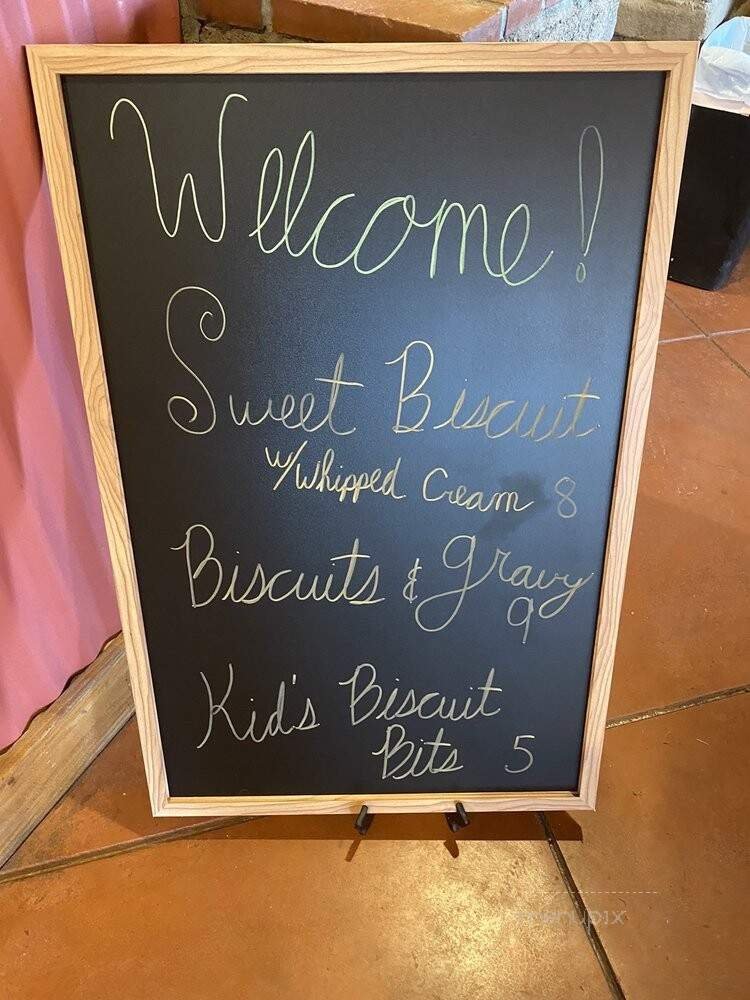 Welcome!
Sweet Biscuit
w/Whipped Cream 8
Biscuits & Gravy
9
Kid's Biscuit
Bits 5
menupix